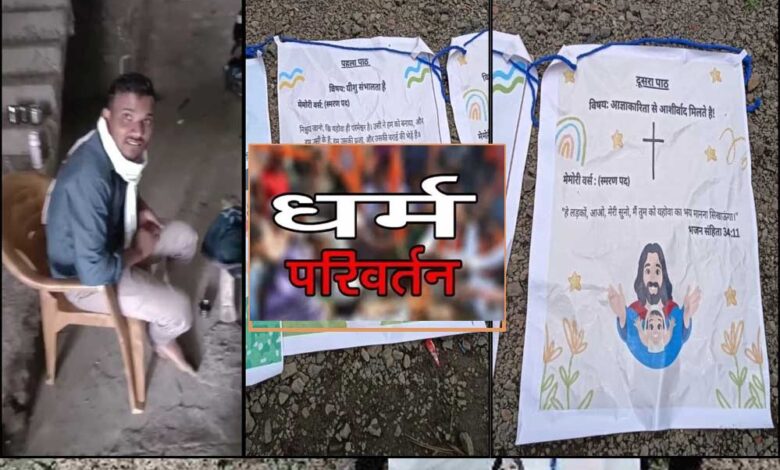 पहला पाठ
विषय: यीशु संभालता है
मेमोरी वर्स: (स्मरण पद)
निश्चय जानो, कि यहोवा ही परमेश्वर है। उसी ने हम को बनाया, और
हम उसी के हैं; हम उसकी प्रजा, और उसकी चराई की भेड़ें हैं।
धर्म
परिवर्तन
दूसरा पाठ
विषय: आज्ञाकारिता से आशीर्वाद मिलते है!
मेमोरी वर्स : (स्मरण पद)
"हे लड़कों, आओ, मेरी सुनो, मैं तुम को यहोवा का भय मानना सिखाऊंगा।"
भजन संहिता 34:11